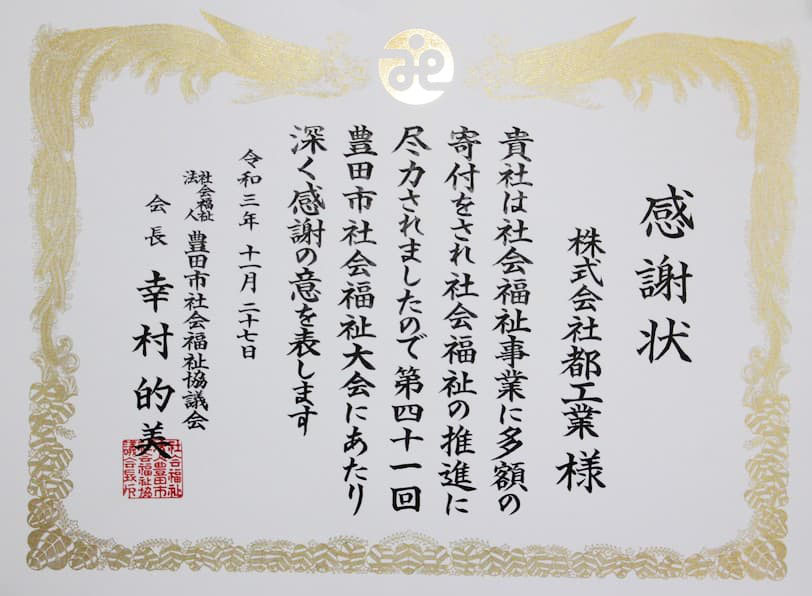 感謝状
株式会社都工業 様
貴社は社会福祉事業に多額の
寄付をされ社会福祉の推進に
尽力されましたので 第四十一回
豊田市社会福祉大会にあたり
深く感謝の意を表します
令和三年 十一月 二十七日
社会福祉法人 豊田市社会福祉協議会
会長 幸村的美
社会福祉
法人豊田市
社会福祉協
議会長印